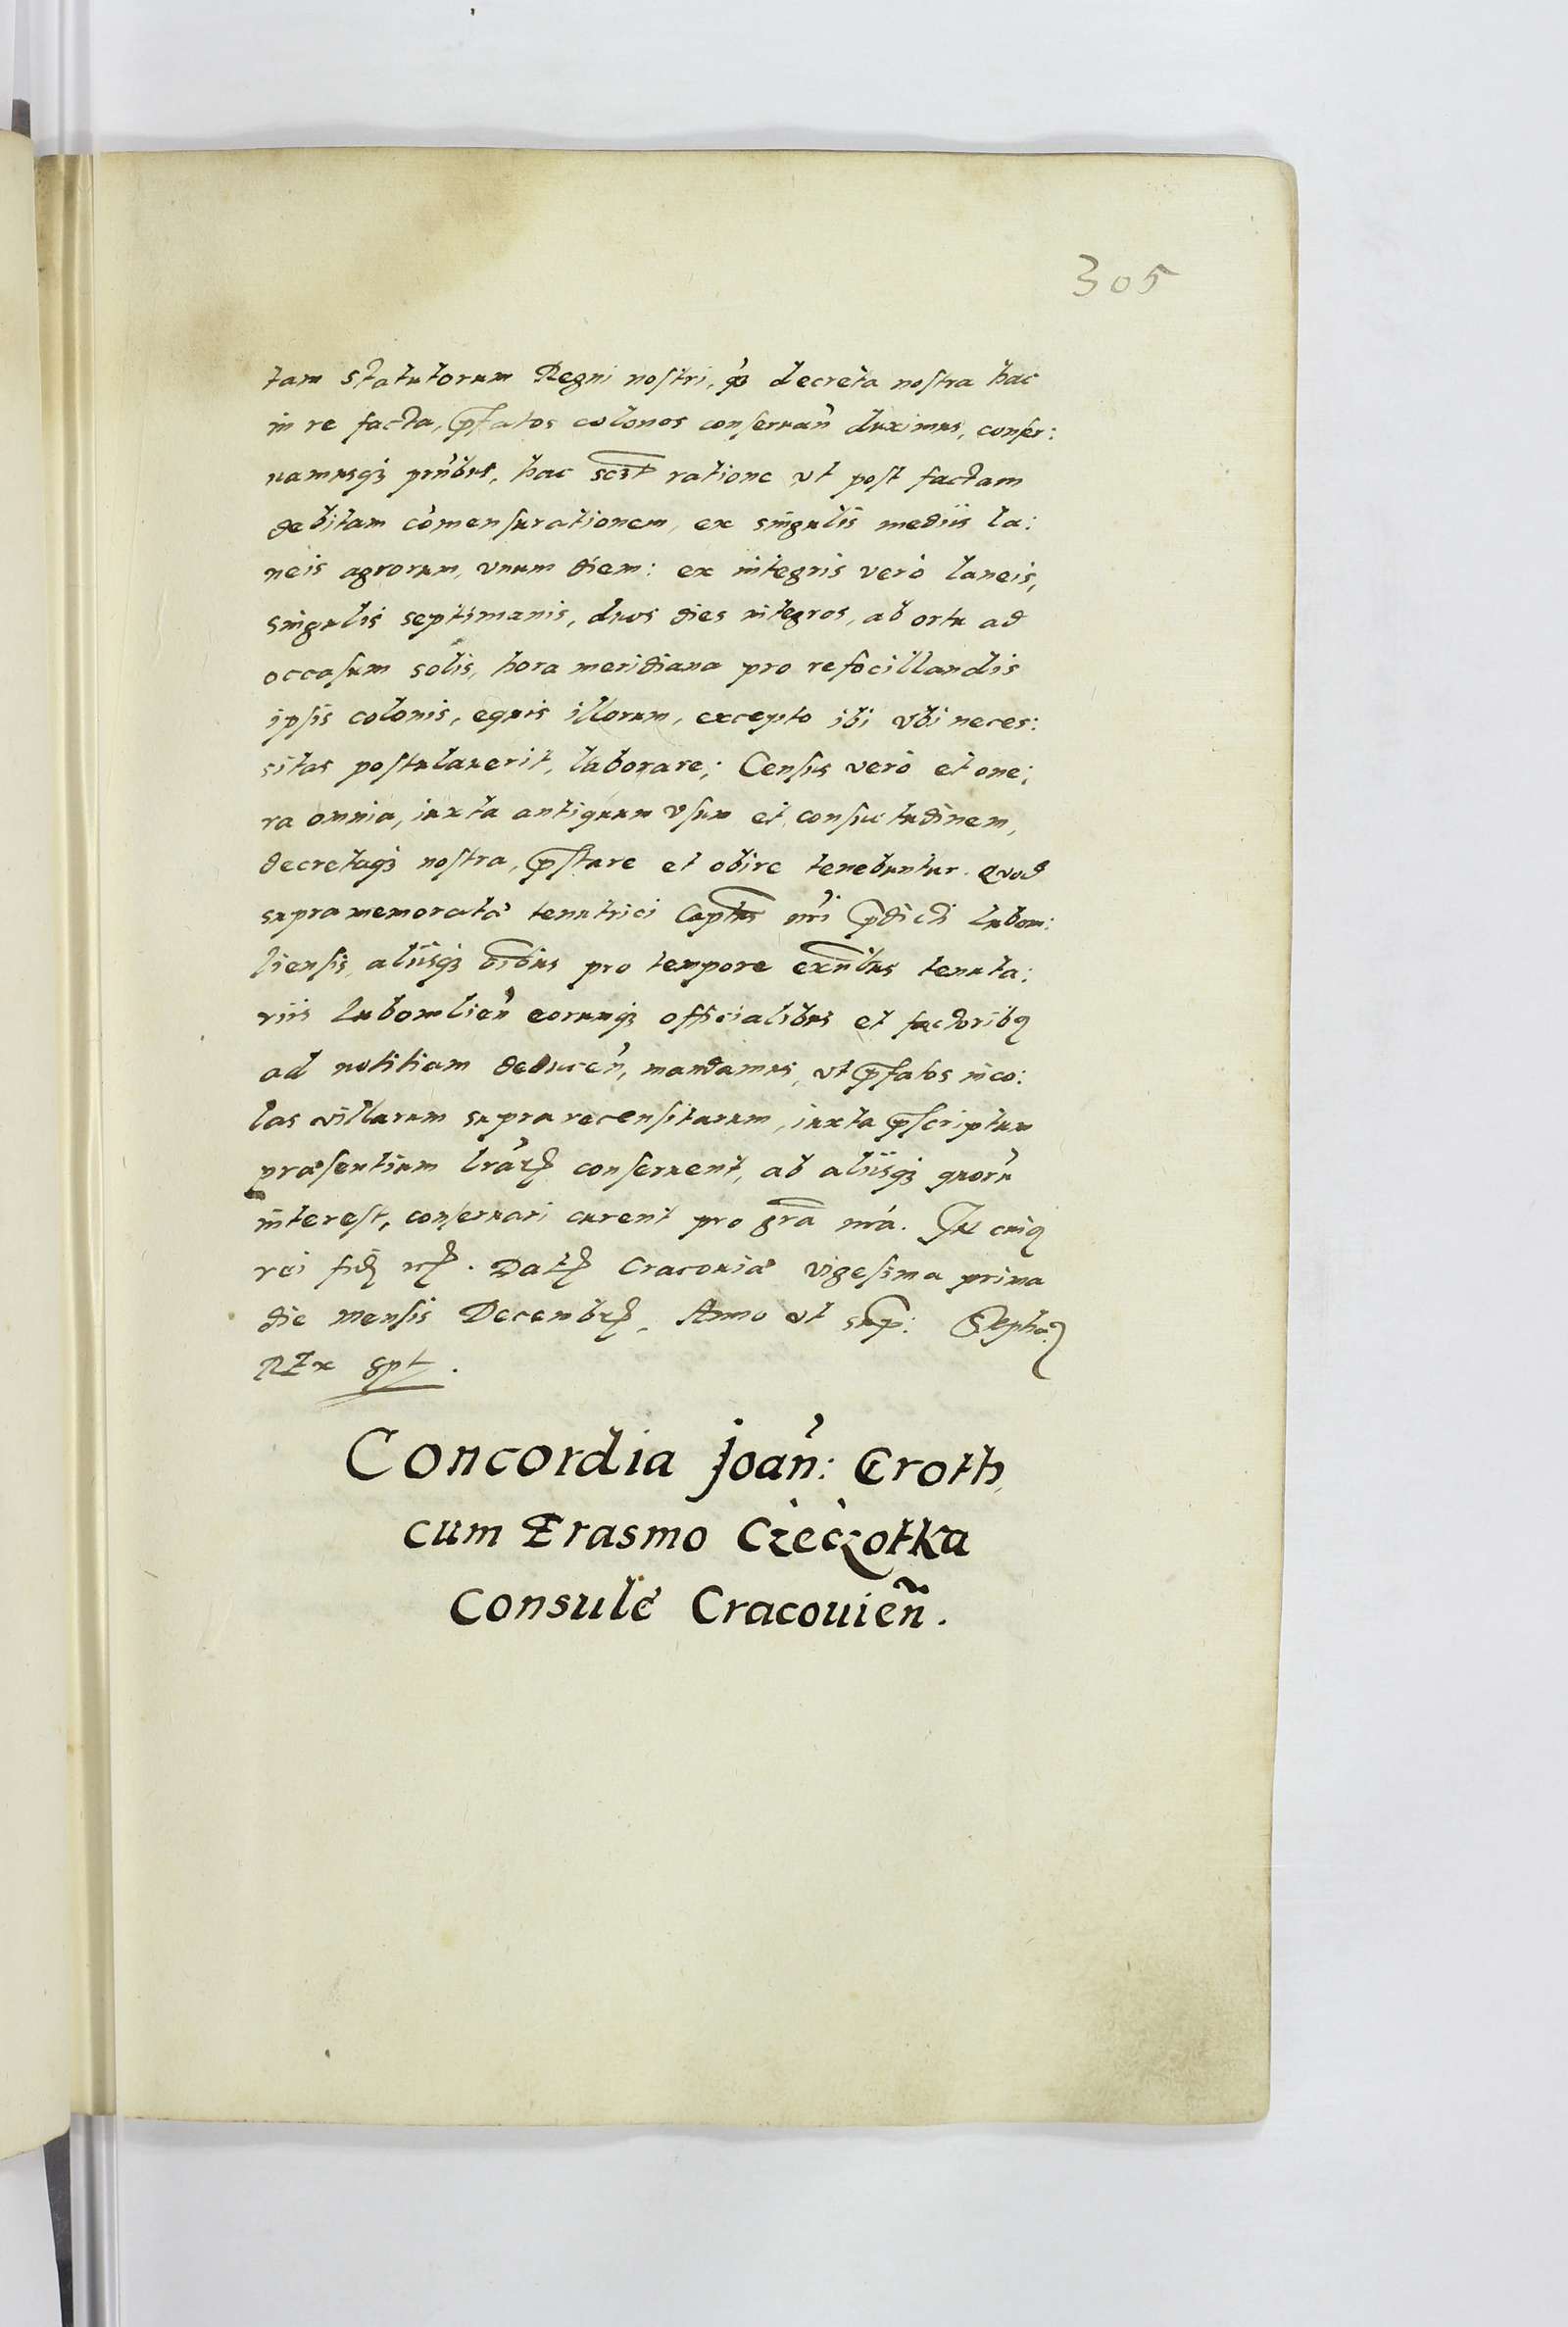 305
tam statutorum Regni nostri, q̃ȝ decreta nostra hac
in re facta, p̃fatos colonos conseruan̄ duximus, conser:
uamusqȝ pn̄tibus, hac scȝt ratione vt post factam
debitam com̄ensurationem, ex singulis mediis la:
neis agrorum, vnum diem: ex integris verò laneis,
singulis septimanis, duos dies integros, ab ortu ad
occasum solis, hora meridiana pro refocillandis
ipsis colonis, equis illorum, excepto ibi vbi neces:
sitas postulauerit, laborare; Census verò et one:
ra omnia, iuxta antiquum vsum et consuetudinem,
decretaqȝ nostra, p̃stare et obire tenebuntur. Quod
supramemoratæ tenutrici Captus nr̄i p̃dicti Lubom:
liensis, aliisqȝ oībus pro tempore exn̄tibus tenuta:
riis Lubomlien̄ eorumqȝ officialibus et factoribꝯ
ad notitiam deducen̄, mandamus, vt p̃fatos inco:
las villarum suprarecensitarum, iuxta p̃scriptum
præsentium lr̄arꝝ conseruent, ab aliisqȝ quorū
interest, conseruari curent pro gr̄a nr̄a. In cuiꝯ
rei fidȩ rcꝭ. Datꝭ Cracouiæ vigesima prima
die mensis Decembrꝭ, Anno vt sup̃: Stepha꜖
REx spt.
Concordia Joan̄: Croth
cum Erasmo Czeczotka
Consule Cracouien̄.